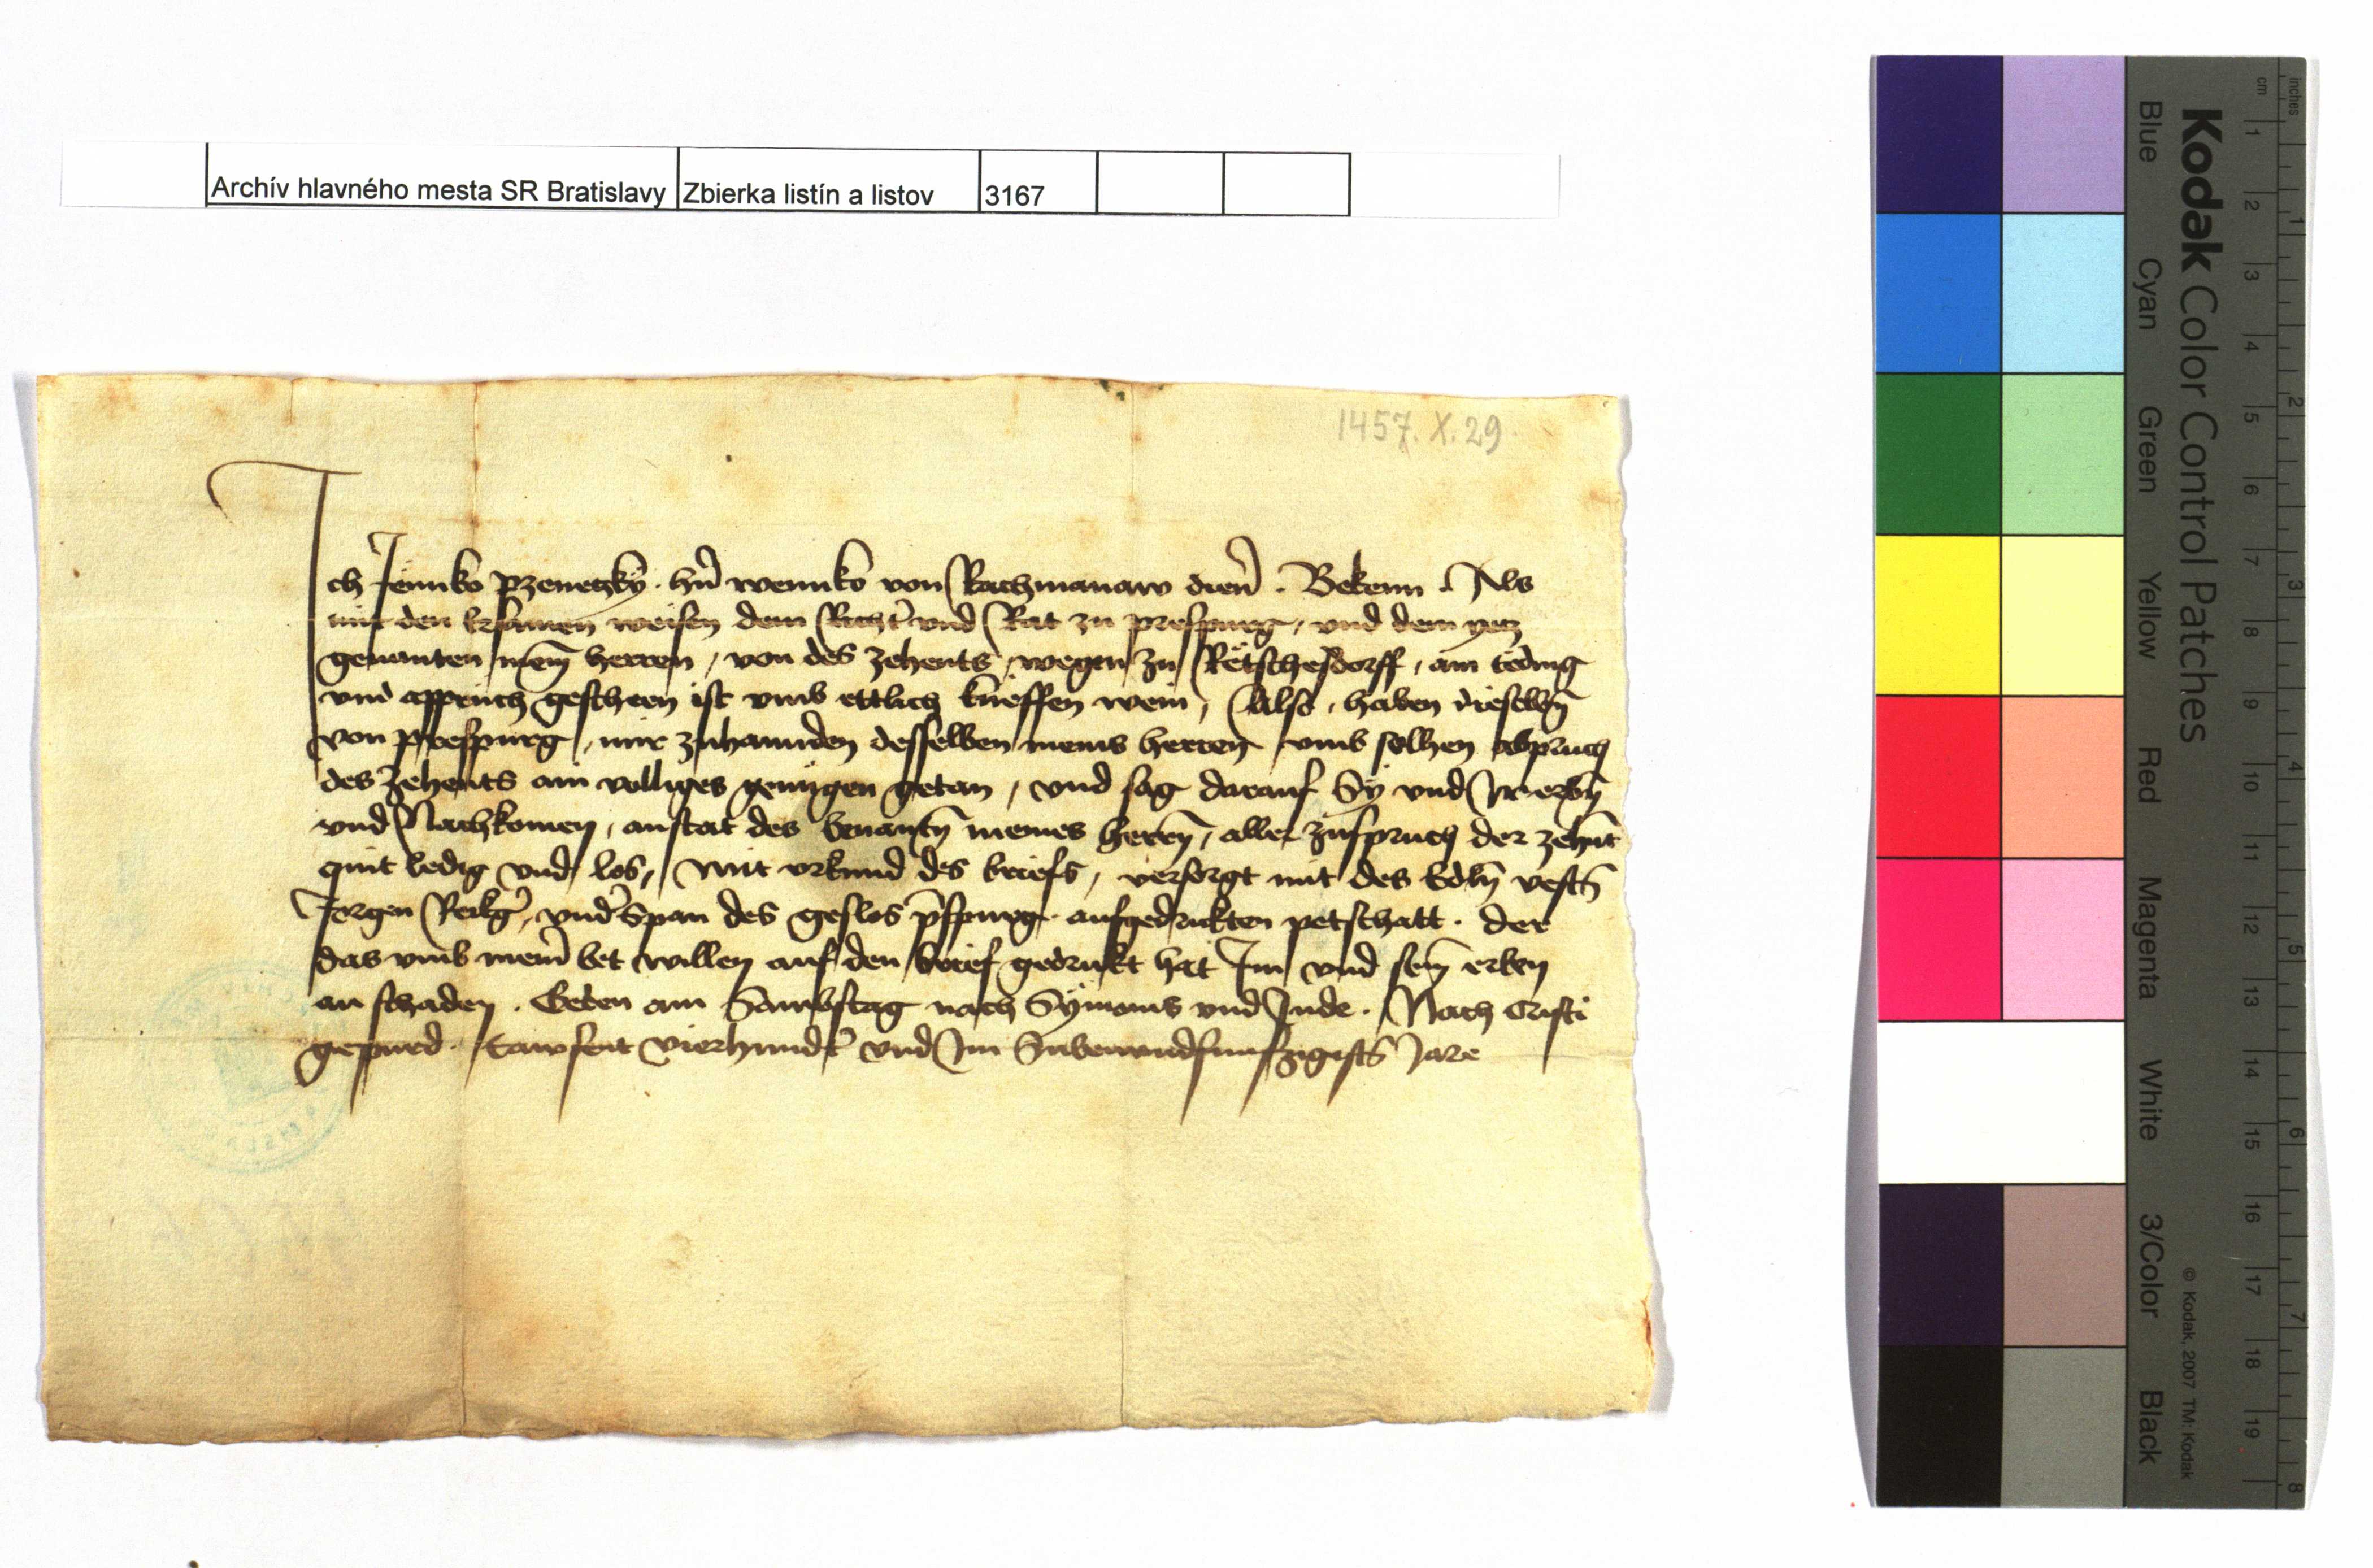 Archív hlavného mesta SR Bratislavy Zbierka listín a listov 3167
1457. X. 29.
Ich Jenniko Przenetzky. hn̄ wenniko von Rachmanaw dien̄. Bekenn. Als
mit den ersamen weisen dem Richt̄ und Rat zu prespurg, und dem yetz
genanten mein̄ herren, von des zehents wegen zu Retschesdorff, ain teding
und appruch gescheen ist umb ettlich kueffen wein, Also, haben dieselbn̄
von prespurg, mir zuhannden desselben meins herren umb solhen abspruch
des zehents ain volliges genugen getan, und sag darauf Sy und Ir erbn̄
und Nachkomen, anstat des benantn̄ meines herrn̄, aller zuspruch der zehnt̄
quit ledig und los, Mit urkund des briefs, versorgt mit des Edln̄ vestn̄
Jorgen und̄span des geslos p̄spurg aufgedruckten petschatt. der
das umb mein̄ bet willen auf den brief gedrukt hat Im und sein̄ erben
an schaden. Geben am Sambstag nach Symonis und Jude. Nach Cristi
gepurd. Tawsent vierhundt̄ und Im Sibenundfunfzigistn̄ Jare
Kodak Color Control Patches
Blue Cyan Green Yellow Red Magenta White 3/Color Black
© Kodak, 2007 TM: Kodak
cm 1 2 3 4 5 6 7 8 9 10 11 12 13 14 15 16 17 18 19
inches 1 2 3 4 5 6 7 8